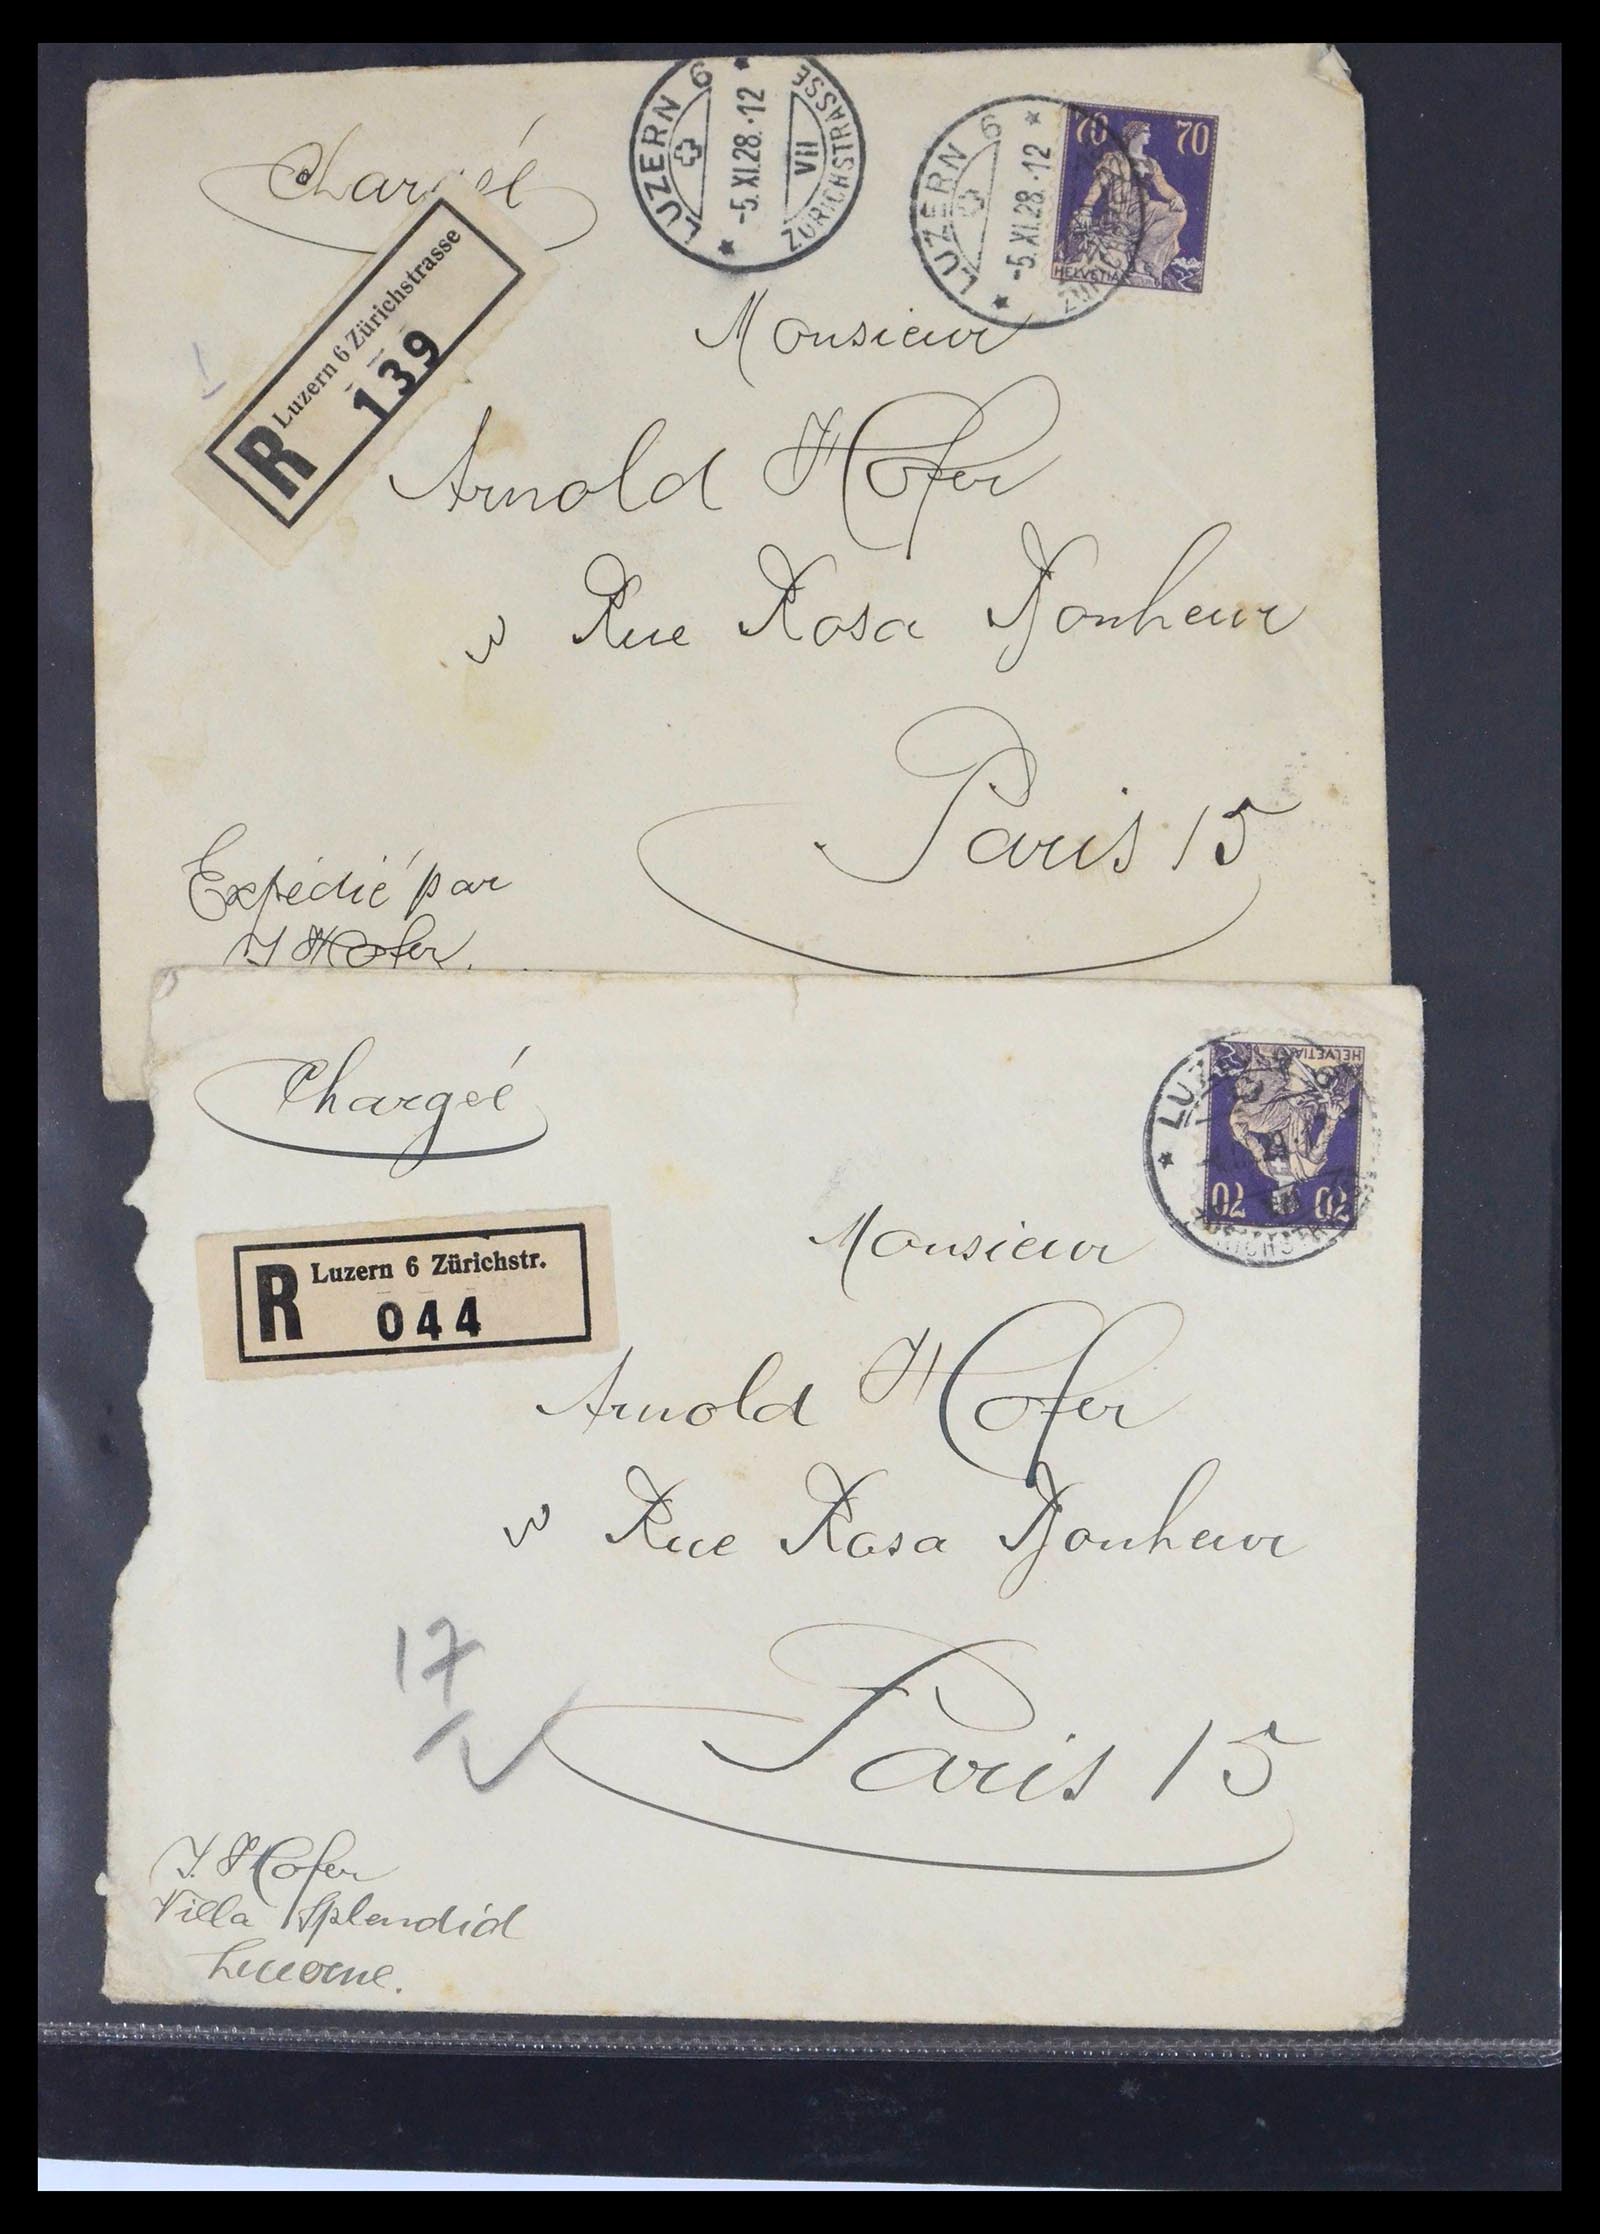 Chargéé
LUZERN 6
-5.XI.28.-12
VII
ZÜRICHSTRASSE
LUZERN 6
-5.XI.28.-12
70 70
HELVETIA
R Luzern 6 Zürichstrasse
139
Monsieur
Arnold Hofer
Rue Rosa Bonheur
Paris 15
Expédié par
J Hofer.
Chargéé
HELVETIA
70 70
R Luzern 6 Zürichstr.
044
Monsieur
Arnold Hofer
Rue Rosa Bonheur
17
Paris 15
J. Hofer
Villa Splendid
Lucerne.